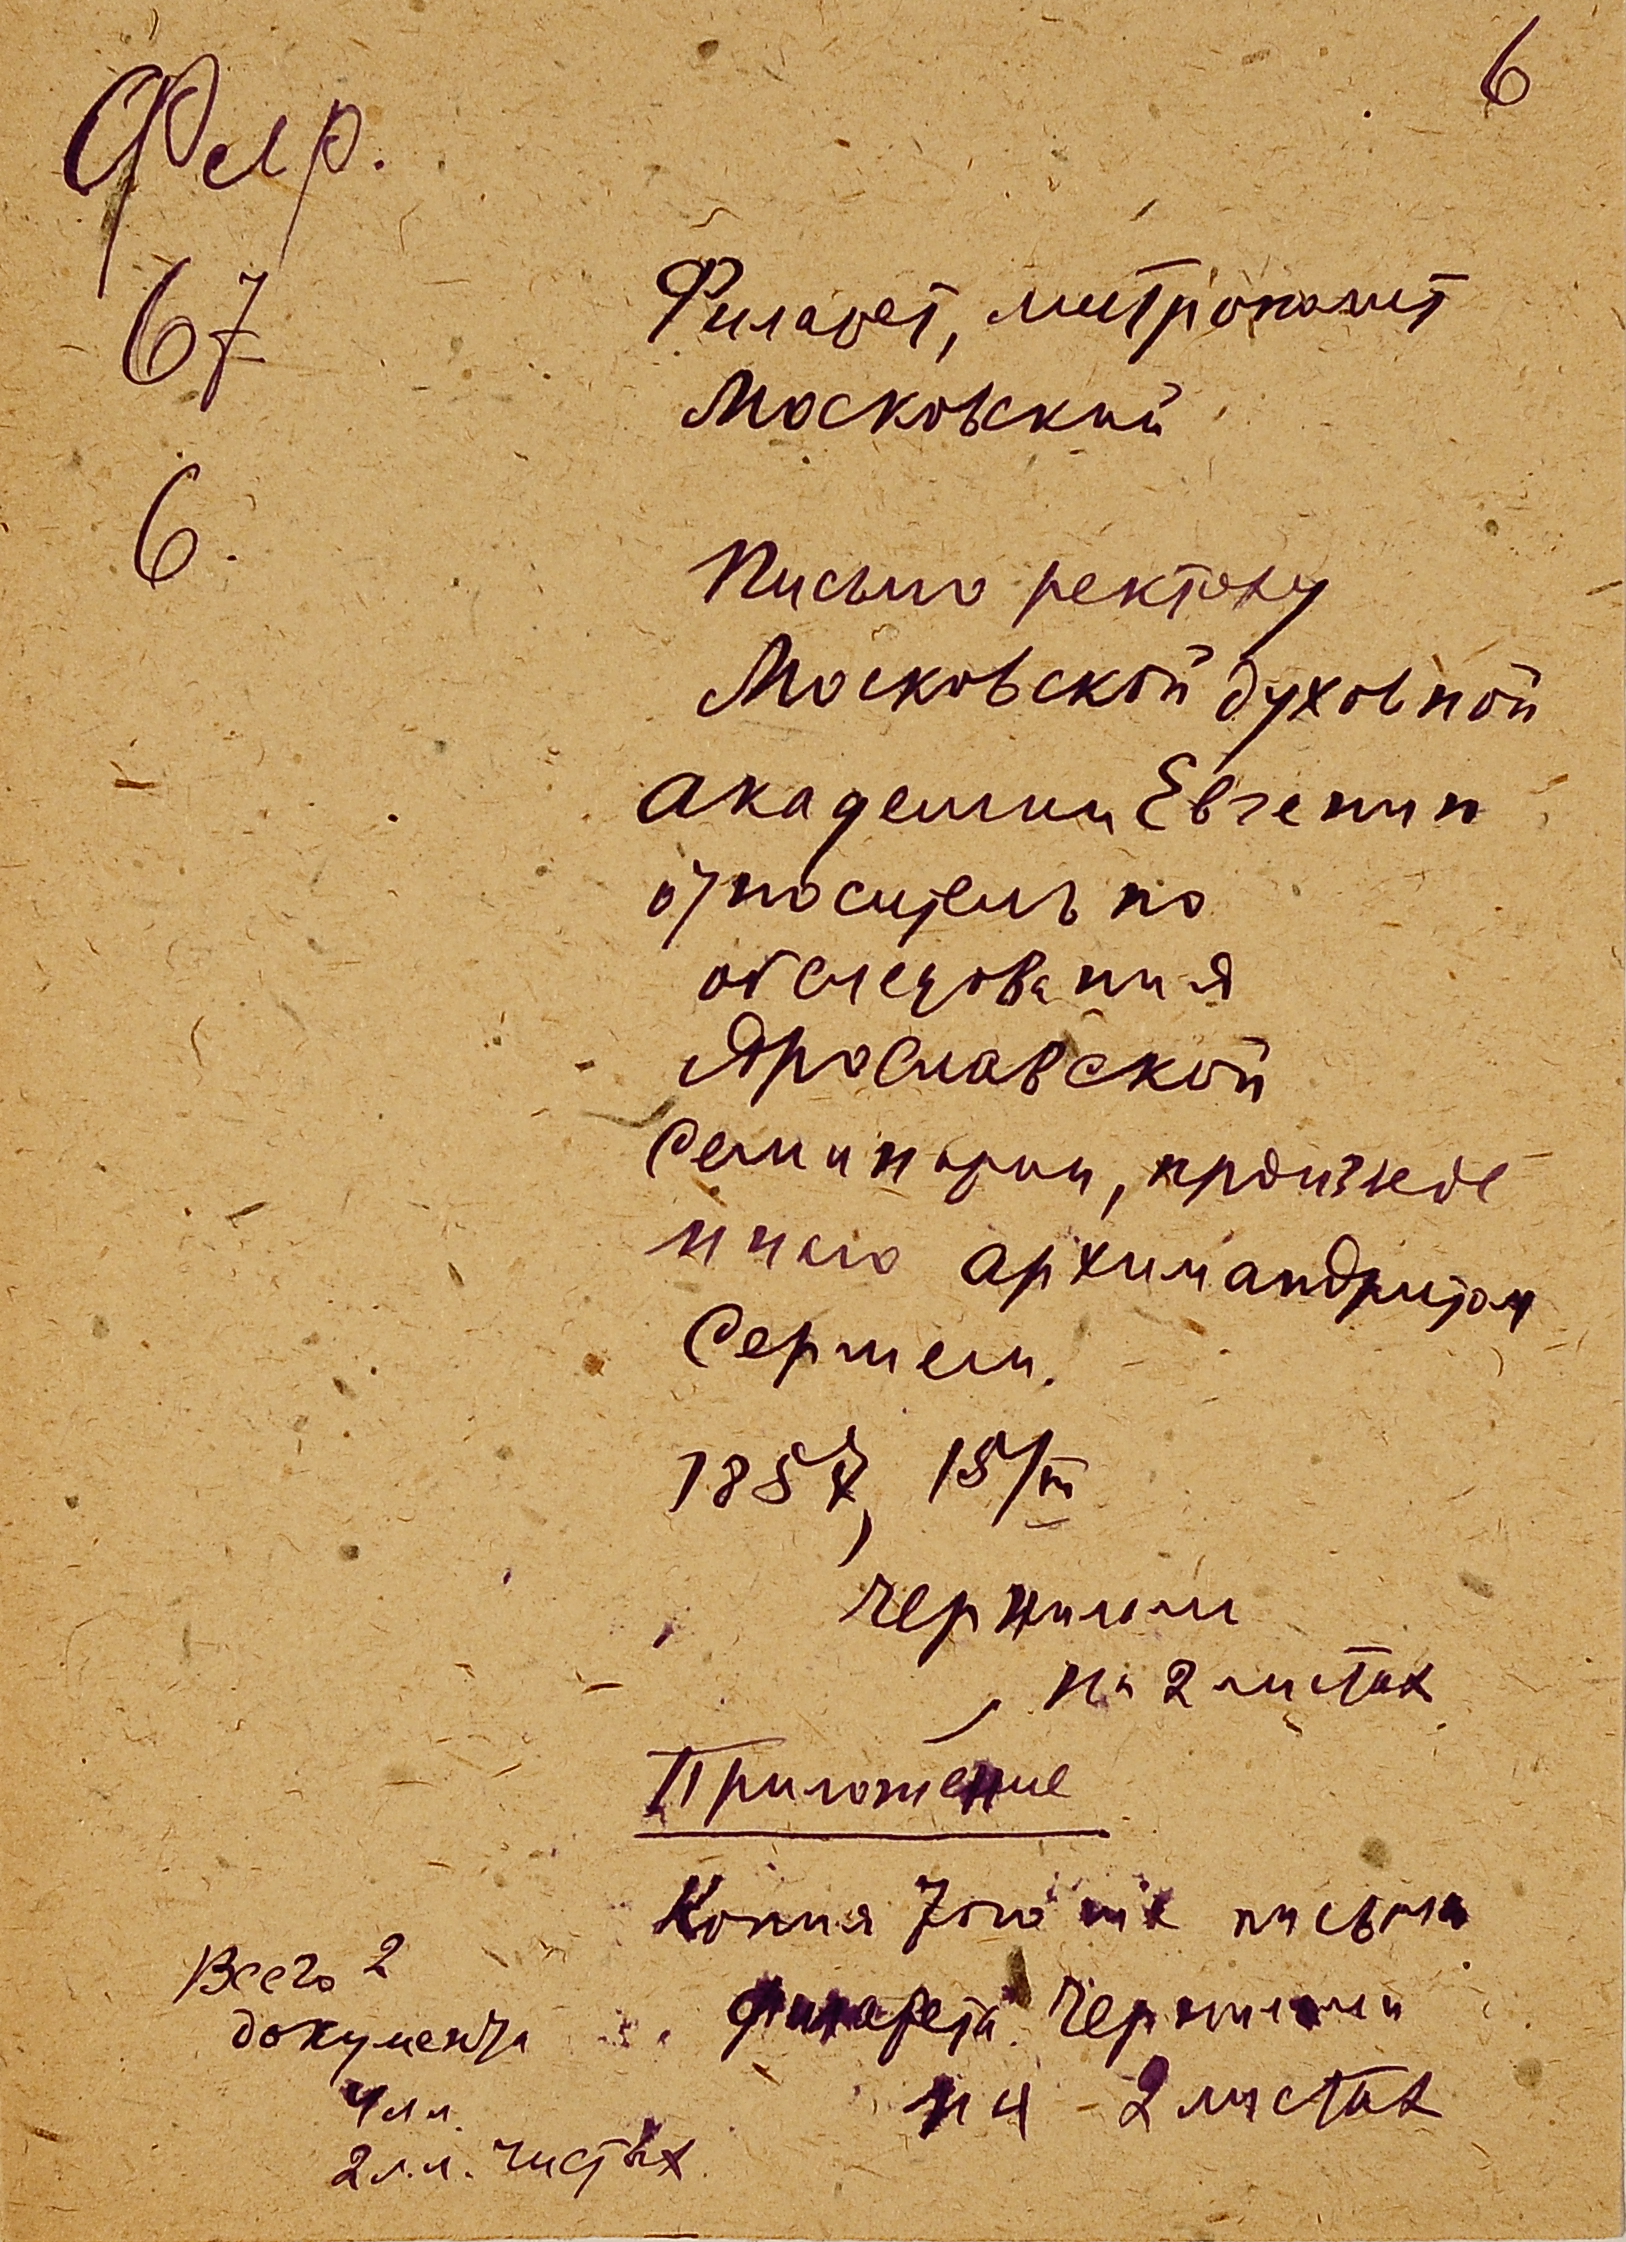 6
Флр.
67
6.
Филарет, митрополит
Московский
Письмо ректору
Московской духовной
академии Евгению
относительно
обследования
Ярославской
семинарии, произведе
нного архимандритом
Сергием.
1857, 15/III
чернилами
на 2 листах
Приложение
Копия того же письма
Филарета. Чернилами
на 2 листах
Всего 2
документа
4 лл.
2 л.л. чистых